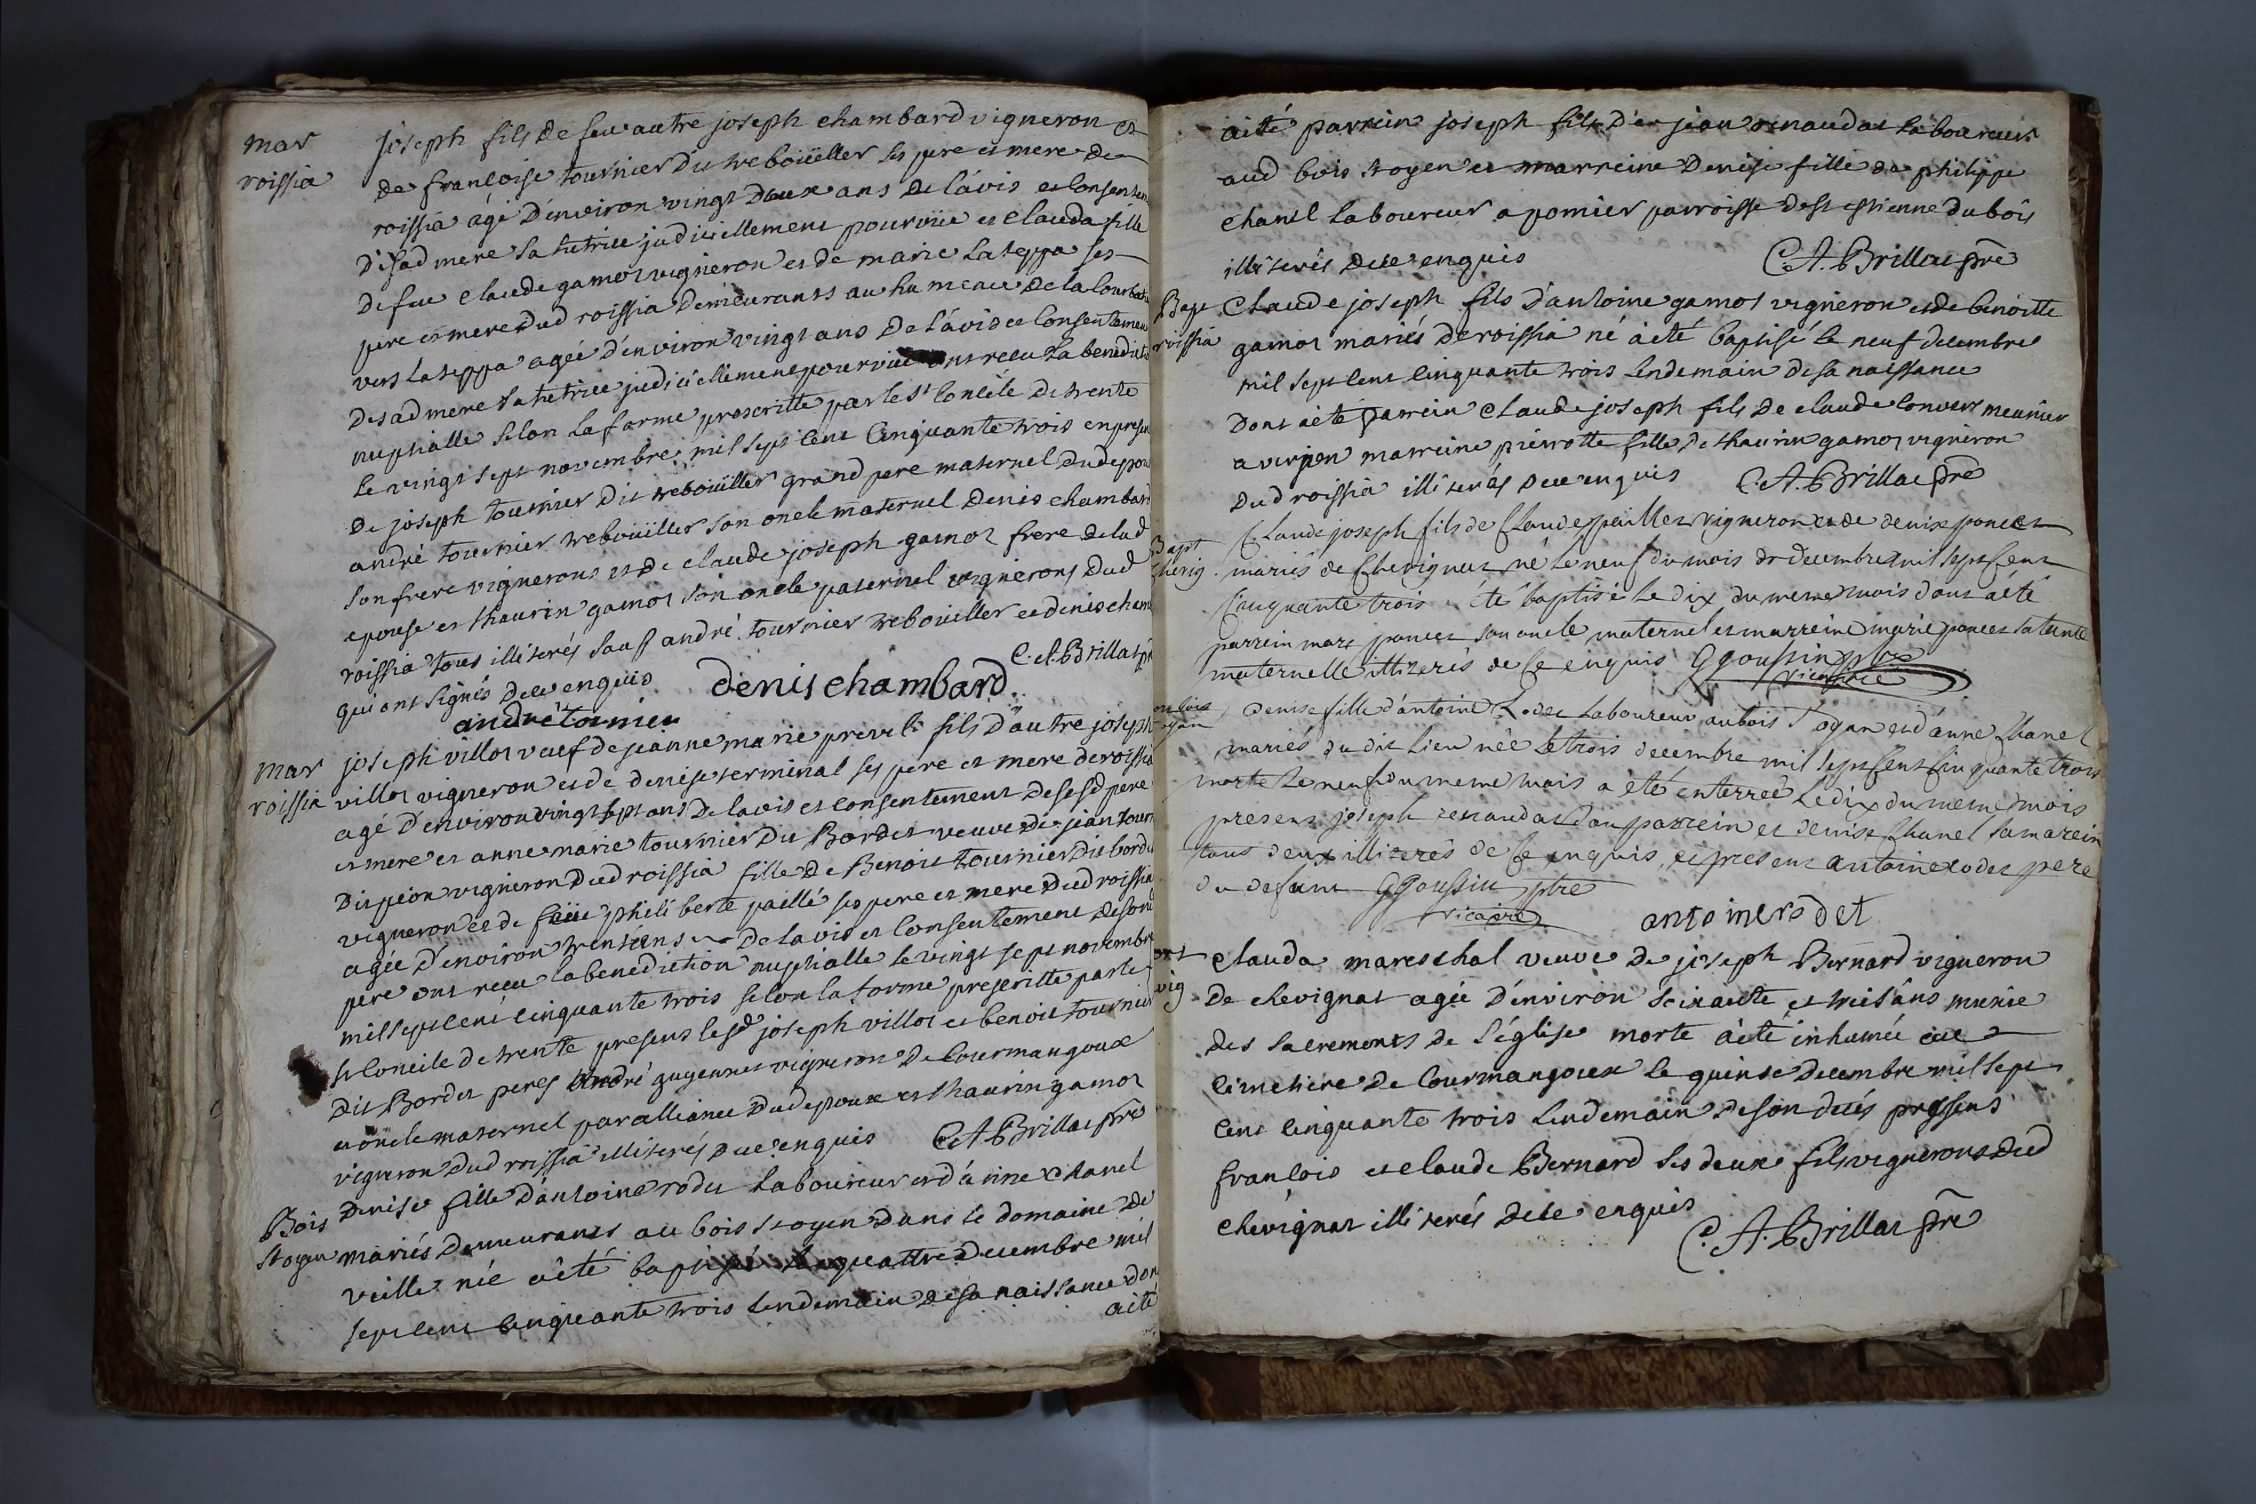 mar
roissia
joseph fils de feu autre joseph chambard vigneron et
de françoise tournier dit rebouïller ses pere et mere de
roissia agé d'environ vingt deux ans de l'avis et consentem
de sad mere sa tutrice judiciellement pourvûe et clauda fille
de feu claude gamot vigneron et de marie lateppa ses
pere et mere dud roissia demeurants au hameau de la courbat
vers lateppa agée d'environ vingt ans de l'avis et consentement
de sad mere sa tutrice judiciellement pourvüe ont recu la benedict
nuptialle selon la forme prescritte par le st concile de trente
le vingt sept novembre mil sept cent cinquante trois en presen
de joseph tournier dit rebouïller grand pere maternel dud epoux
andré tournier rebouïller son oncle maternel denis chambard
son frere vignerons et de claude joseph gamot frere de lad
epouse et thaurin gamot son oncle paternel vignerons dud
roissia tous illiterés sauf andré tournier rebouiller et denis cham
qui ont signés de ce enquis
C. A. Brillat p
denis chambard
andré tornier
mar
roissia
joseph villot veuf de jeanne marie fils d'autre joseph
villot vigneron et de denise terminal ses pere et mere de roissia
agé d'environ vingt sept ans de l'avis et consentement de sesd pere
et mere et anne marie tournier dit Bordet veuve de jean tourn
dit peon vigneron dud roissia fille de Benoit tournier dit borde
vigneron et de feüe philiberte paillé ses pere et mere dud roissia
agée d'environ trente ans de l'avis et consentement de son
pere ont recu la benediction nuptialle le vingt sept novembre
mil sept cent cinquante trois selon la forme prescritte par le
st concile de trente presens lesd joseph villot et benoit tournier
dit Bordet peres andré guyennet vigneron de Courmangoux
oncle maternel par alliance dud epoux et thaurin gamot
vigneron dud roissia illiterés de ce enquis C. A. Brillat pre
Bois
stogen
denise fille d'antoine rodet laboureur et d'anne chanel
mariés demeurants au bois stogen dans le domaine de
veille née a été baptisé le quattre decembre mil
sept cent cinquante trois lendemain de sa naissance don
a été
a été parrein joseph fils d'er jean renaudat laboureur
aud bois stogen et marreine denise fille de philippe
chanel laboureur a pomier parroisse de st estienne du bois
illiterés de ce enquis C. A. Brillat pre
Bapt
roissia
Claude joseph fils d'antoine gamot vigneron et de benoitte
gamot mariés de roissia né a été baptisé le neuf decembre
mil sept cent cinquante trois lendemain de sa naissance
dont a été parrein claude joseph fils de claude convert meunier
a verjon marreine pierrotte fille de thaurin gamot vigneron
dud roissia illiterés de ce enquis C. A. Brillat pre
Bapt
chevig
Claude joseph fils de Claude paillet vigneron et de denise poncet
mariés de Chevignat né le neuf du mois de decembre mil sept cent
Cinquante trois été baptisé le dix du meme mois dont a été
parrein marc poncet son oncle maternel et marreine marie poncet sa tante
maternelle illiterés de ce enquis G goussin ptre
vicaire
denise fille d'antoine Rodet Laboureur au bois Togan et d'anne Chanel
mariés du dit lieu née le trois decembre mil sept cent cinquante trois
morte le neuf du meme mois a été enterrée le dix du meme mois
presens joseph renaudat son parrein et denise Chanel sa marein
tous deux illiterés de ce enquis et present antoine rodet pere
du defunt G Goussin ptre
vicaire
antoinerodet
ort
vig
clauda mareschal veuve de joseph Bernard vigneron
de chevignat agée d'environ soixante et trois ans munie
des sacrements de l'église morte a été inhumée au
cimetiere de Courmangoux le quinse decembre mil sept
cent cinquante trois lendemain de son decés presens
françois et claude Bernard ses deux fils vignerons dud
chevignat illiterés de ce enquis
C. A. Brillat pre